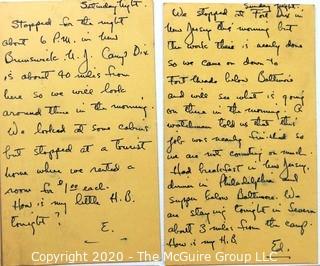 Saturday Night.
Stopped for the night
about 6 P.M. in New
Brunswick N.J. Camp Dix
is about 40 miles from
here so we will look
around there in the morning.
We looked at some cabins
but stopped at a tourist
home where we rented a
room for $1.00 each.
How is my little H.B.
tonight?
E.
Sunday Night.
We stopped at Fort Dix in
New Jersey this morning but
the work there is nearly done
so we came on down to
Fort Meade below Baltimore
and will see what is going
on there in the morning. A
watchman told us that this
job was nearly finished so
we are not counting on much.
Had breakfast in New Jersey,
dinner in Philadelphia and
supper below Baltimore. We
are staying tonight in Severn
about 3 miles from the camp.
How is my H.B.
Ed.
Copyright 2020 - McGuire Group LLC